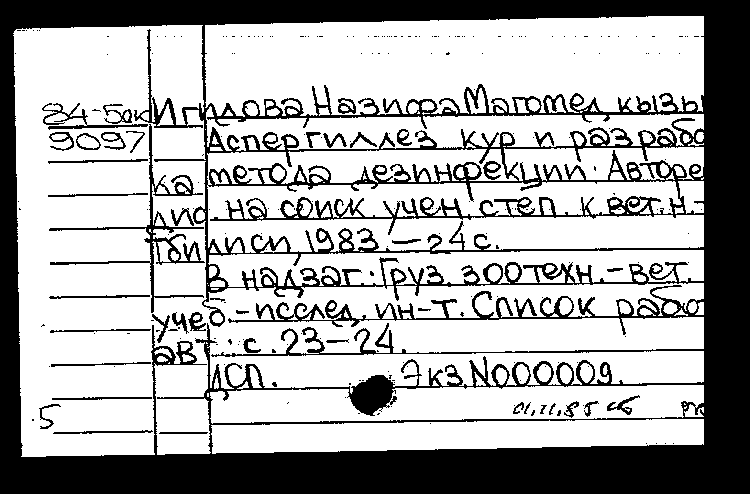 84-5бак Игидова, Назифа Магомед кызы
9097 Аспергиллез кур и разрабо
ка метода дезинфекции: Авторе
дис. на соиск учен. степ. к. вет. н. -
Тбилиси, 1983. - 24 с.
В надзаг.: Груз. зоотехн.-вет.
учеб.-исслед. ин-т. Список рабо
авт.: с. 23-24.
ДСП. Экз. N000009.
5 01.11.85